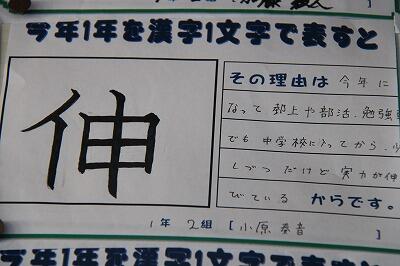 今年1年を漢字1文字で表すと
伸
その理由は 今年に
なって 郡上や部活、勉強
でも 中学校に入ってから、少
しづつ だけど 実力が伸
びている からです。
1年 2組 [小原 奏音 ]
今年1年を漢字1文字で表すと